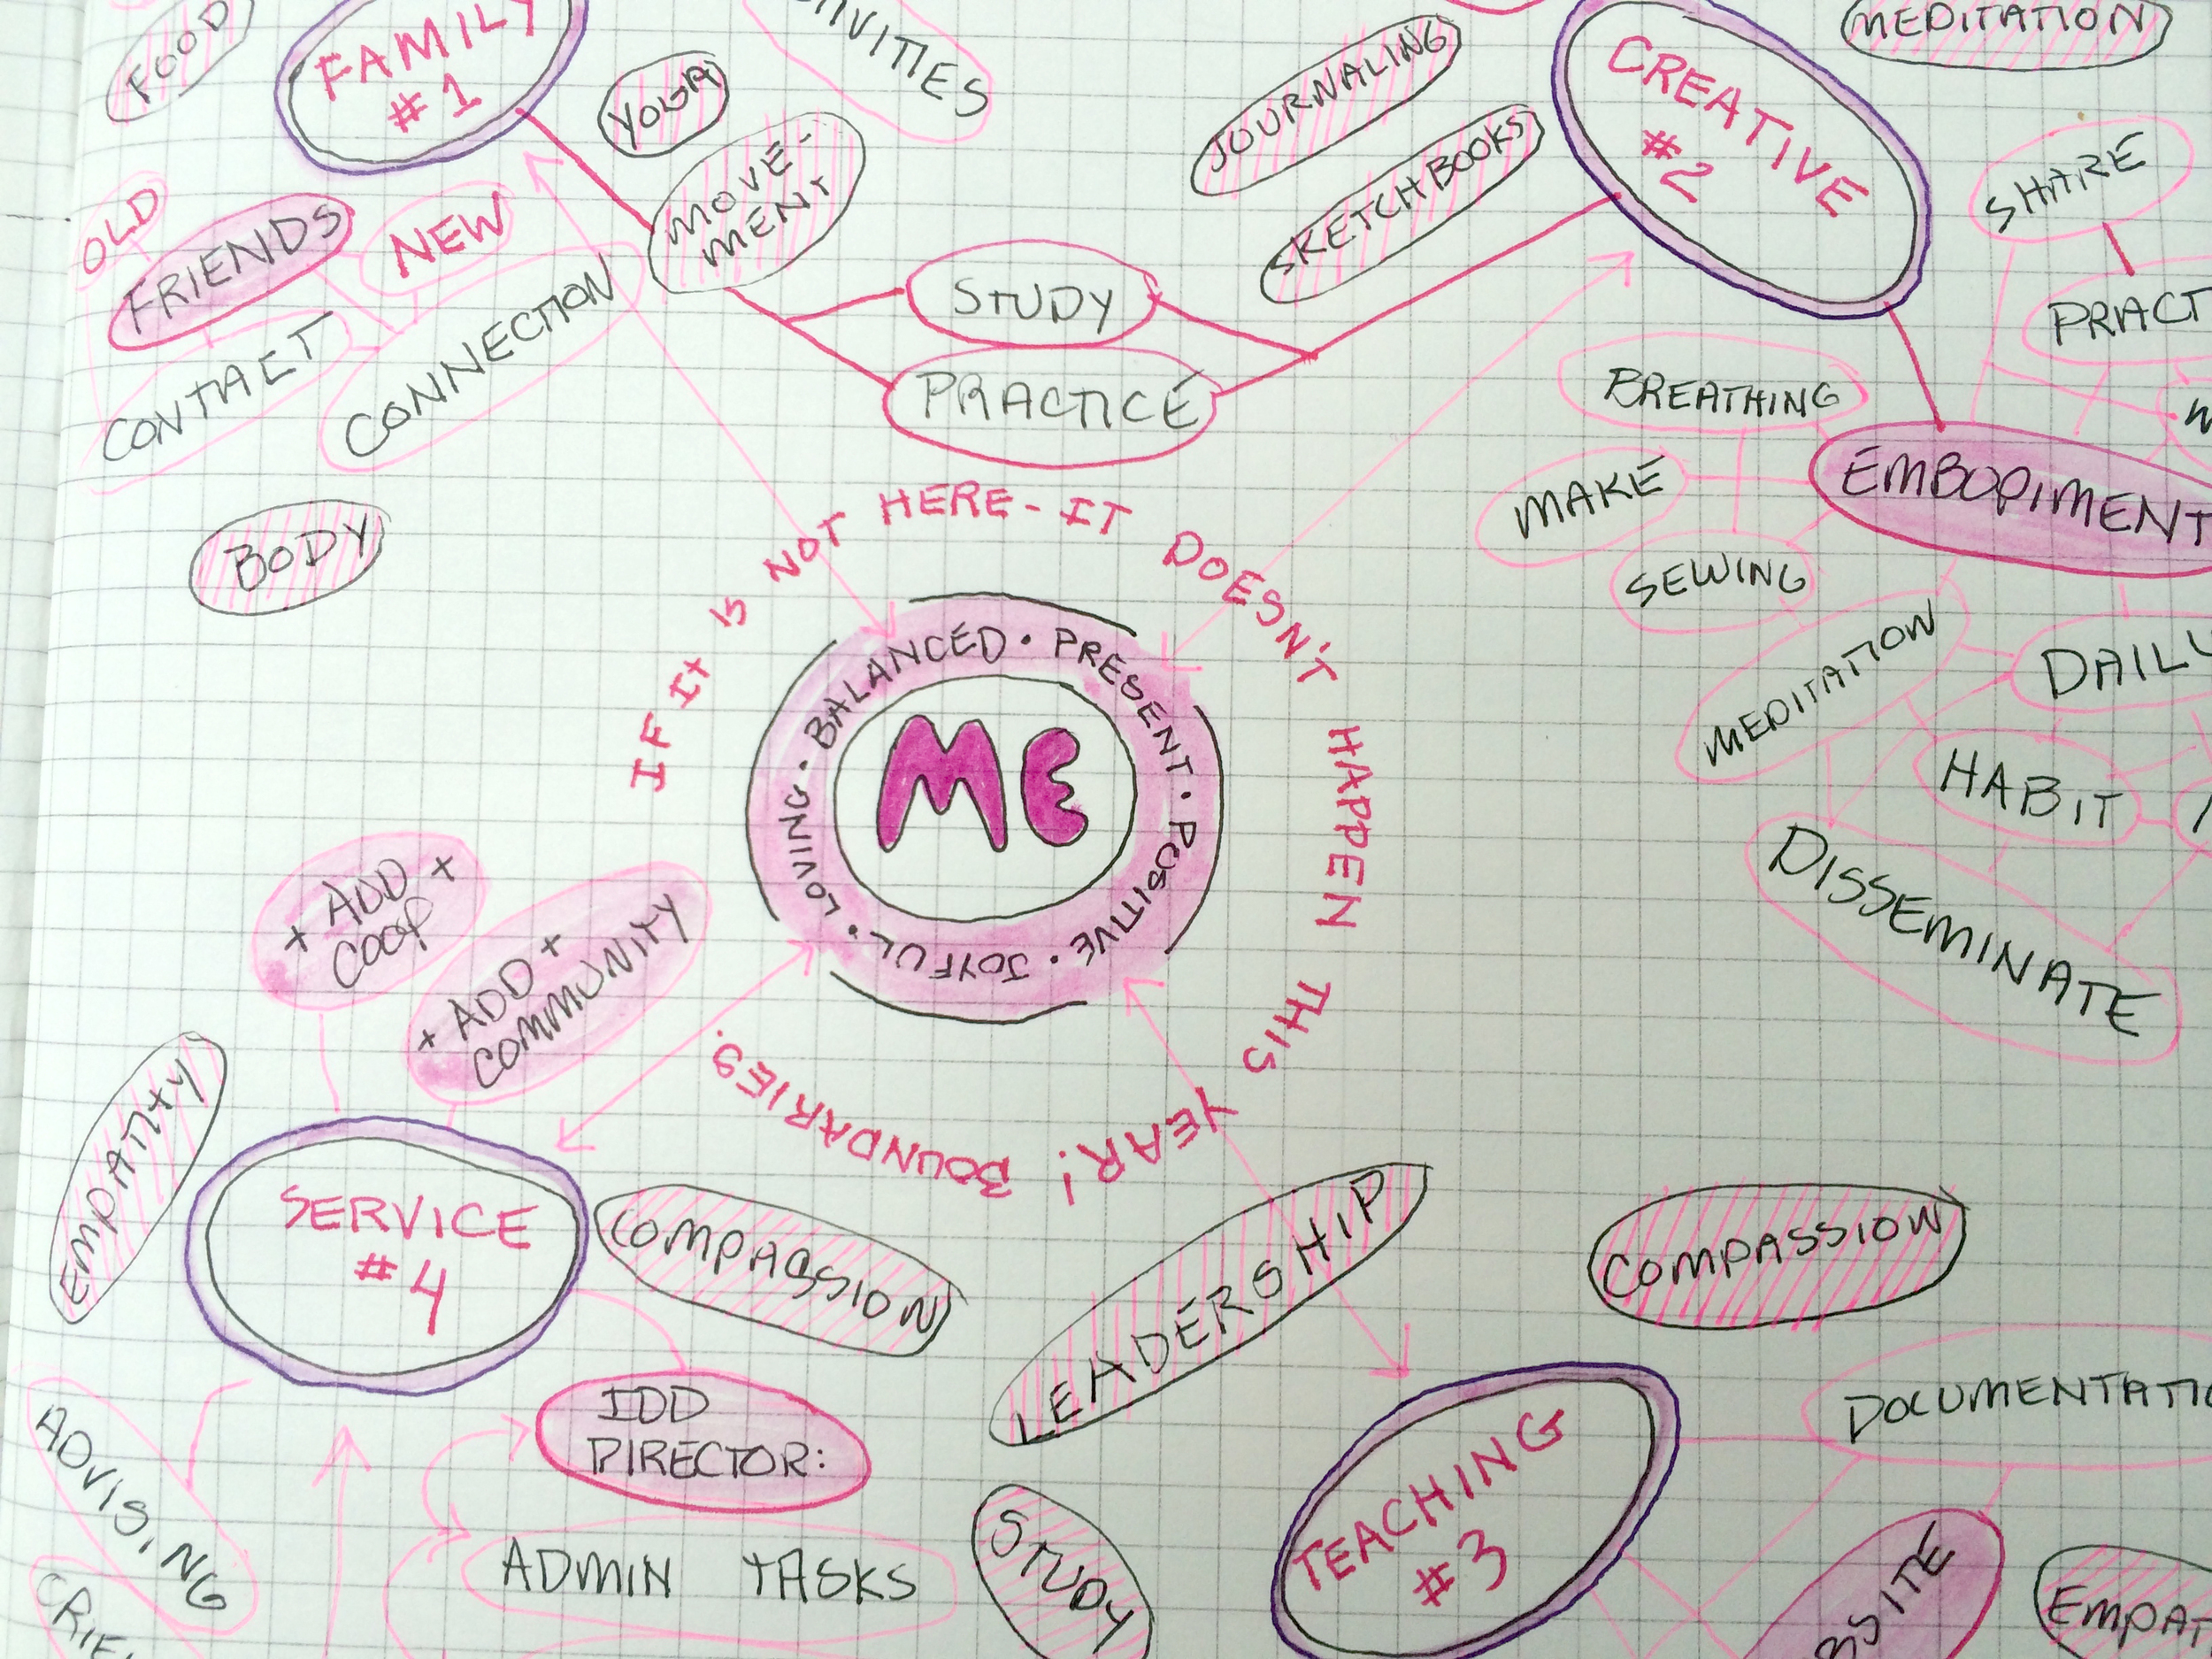 FOOD
FAMILY
#1
YOGA
MOVE-
MENT
JOURNALING
SKETCHBOOKS
CREATIVE
#2
MEDITATION
SHARE
OLD
FRIENDS
NEW
CONTACT
CONNECTION
STUDY
PRACTICE
BREATHING
MAKE
SEWING
EMBODIMENT
MEDITATION
HABIT
DISSEMINATE
BODY
IF IT IS NOT HERE - IT DOESN'T HAPPEN THIS YEAR! BOUNDARIES.
BALANCED · PRESENT · POSITIVE · JOYFUL · LOVING ·
ME
+ ADD +
COOP
+ ADD +
COMMUNITY
EMPATHY
SERVICE
#4
COMPASSION
LEADERSHIP
COMPASSION
ADVISING
IDD
DIRECTOR:
ADMIN TASKS
STUDY
TEACHING
#3